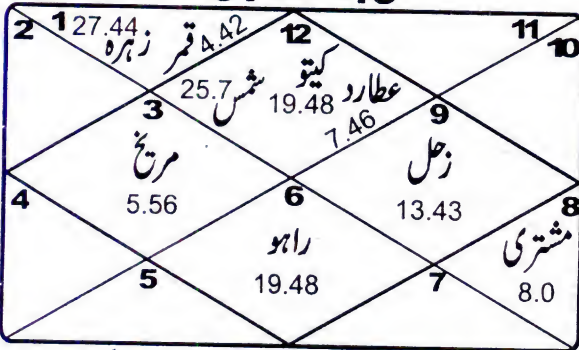 2 1 27.44 زہرہ قمر 4.42 12 11 10
3 25.7 شمس کیتو 19.48 عطارد 7.46 9
مریخ 5.56
زحل 13.43
4 6 8
راہو 19.48
مشتری 8.0
5 7